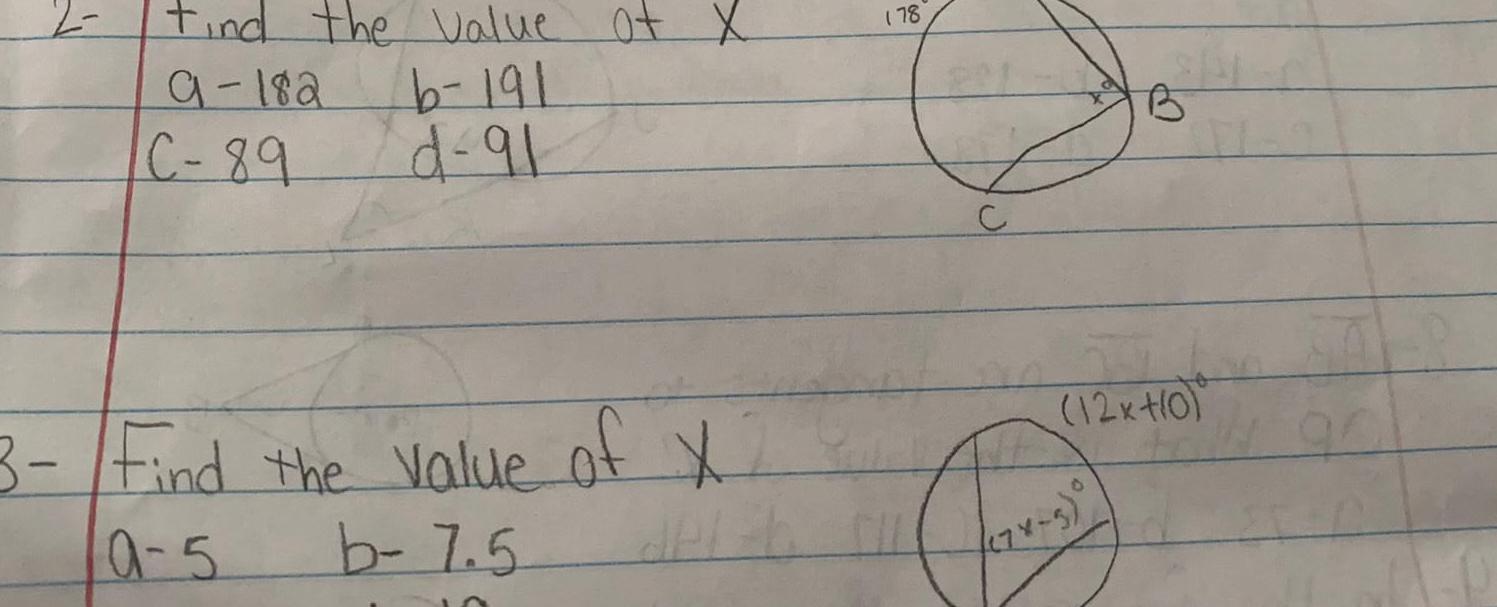 2- Find the value of X
178°
a-182 b-191
x°
B
C-89 d-91
C
(12x+10)°
3- Find the value of X
(7x-5)°
a-5 b-7.5